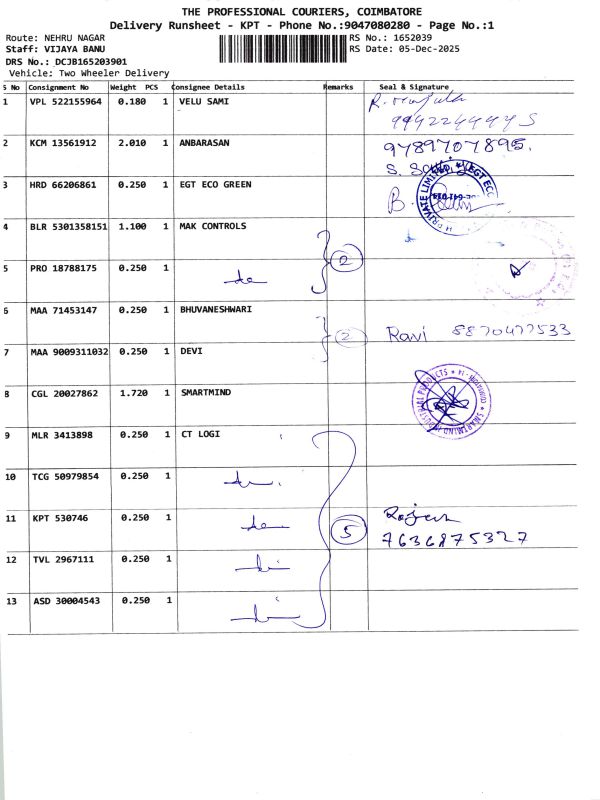 THE PROFESSIONAL COURIERS, COIMBATORE
Delivery Runsheet - KPT - Phone No.:9047080280 - Page No.:1
Route: NEHRU NAGAR RS No.: 1652039
Staff: VIJAYA BANU RS Date: 05-Dec-2025
DRS No.: DCJB165203901
Vehicle: Two Wheeler Delivery
S No Consignment No Weight PCS Consignee Details Remarks Seal & Signature
1 VPL 522155964 0.180 1 VELU SAMI
2 KCM 13561912 2.010 1 ANBARASAN 9789707895.
3 HRD 66206861 0.250 1 EGT ECO GREEN
4 BLR 5301358151 1.100 1 MAK CONTROLS
2
5 PRO 18788175 0.250 1
6 MAA 71453147 0.250 1 BHUVANESHWARI
2 Ravi 8870477533
7 MAA 9009311032 0.250 1 DEVI
8 CGL 20027862 1.720 1 SMARTMIND
9 MLR 3413898 0.250 1 CT LOGI
10 TCG 50979854 0.250 1
11 KPT 530746 0.250 1 5 7636875327
12 TVL 2967111 0.250 1
13 ASD 30004543 0.250 1